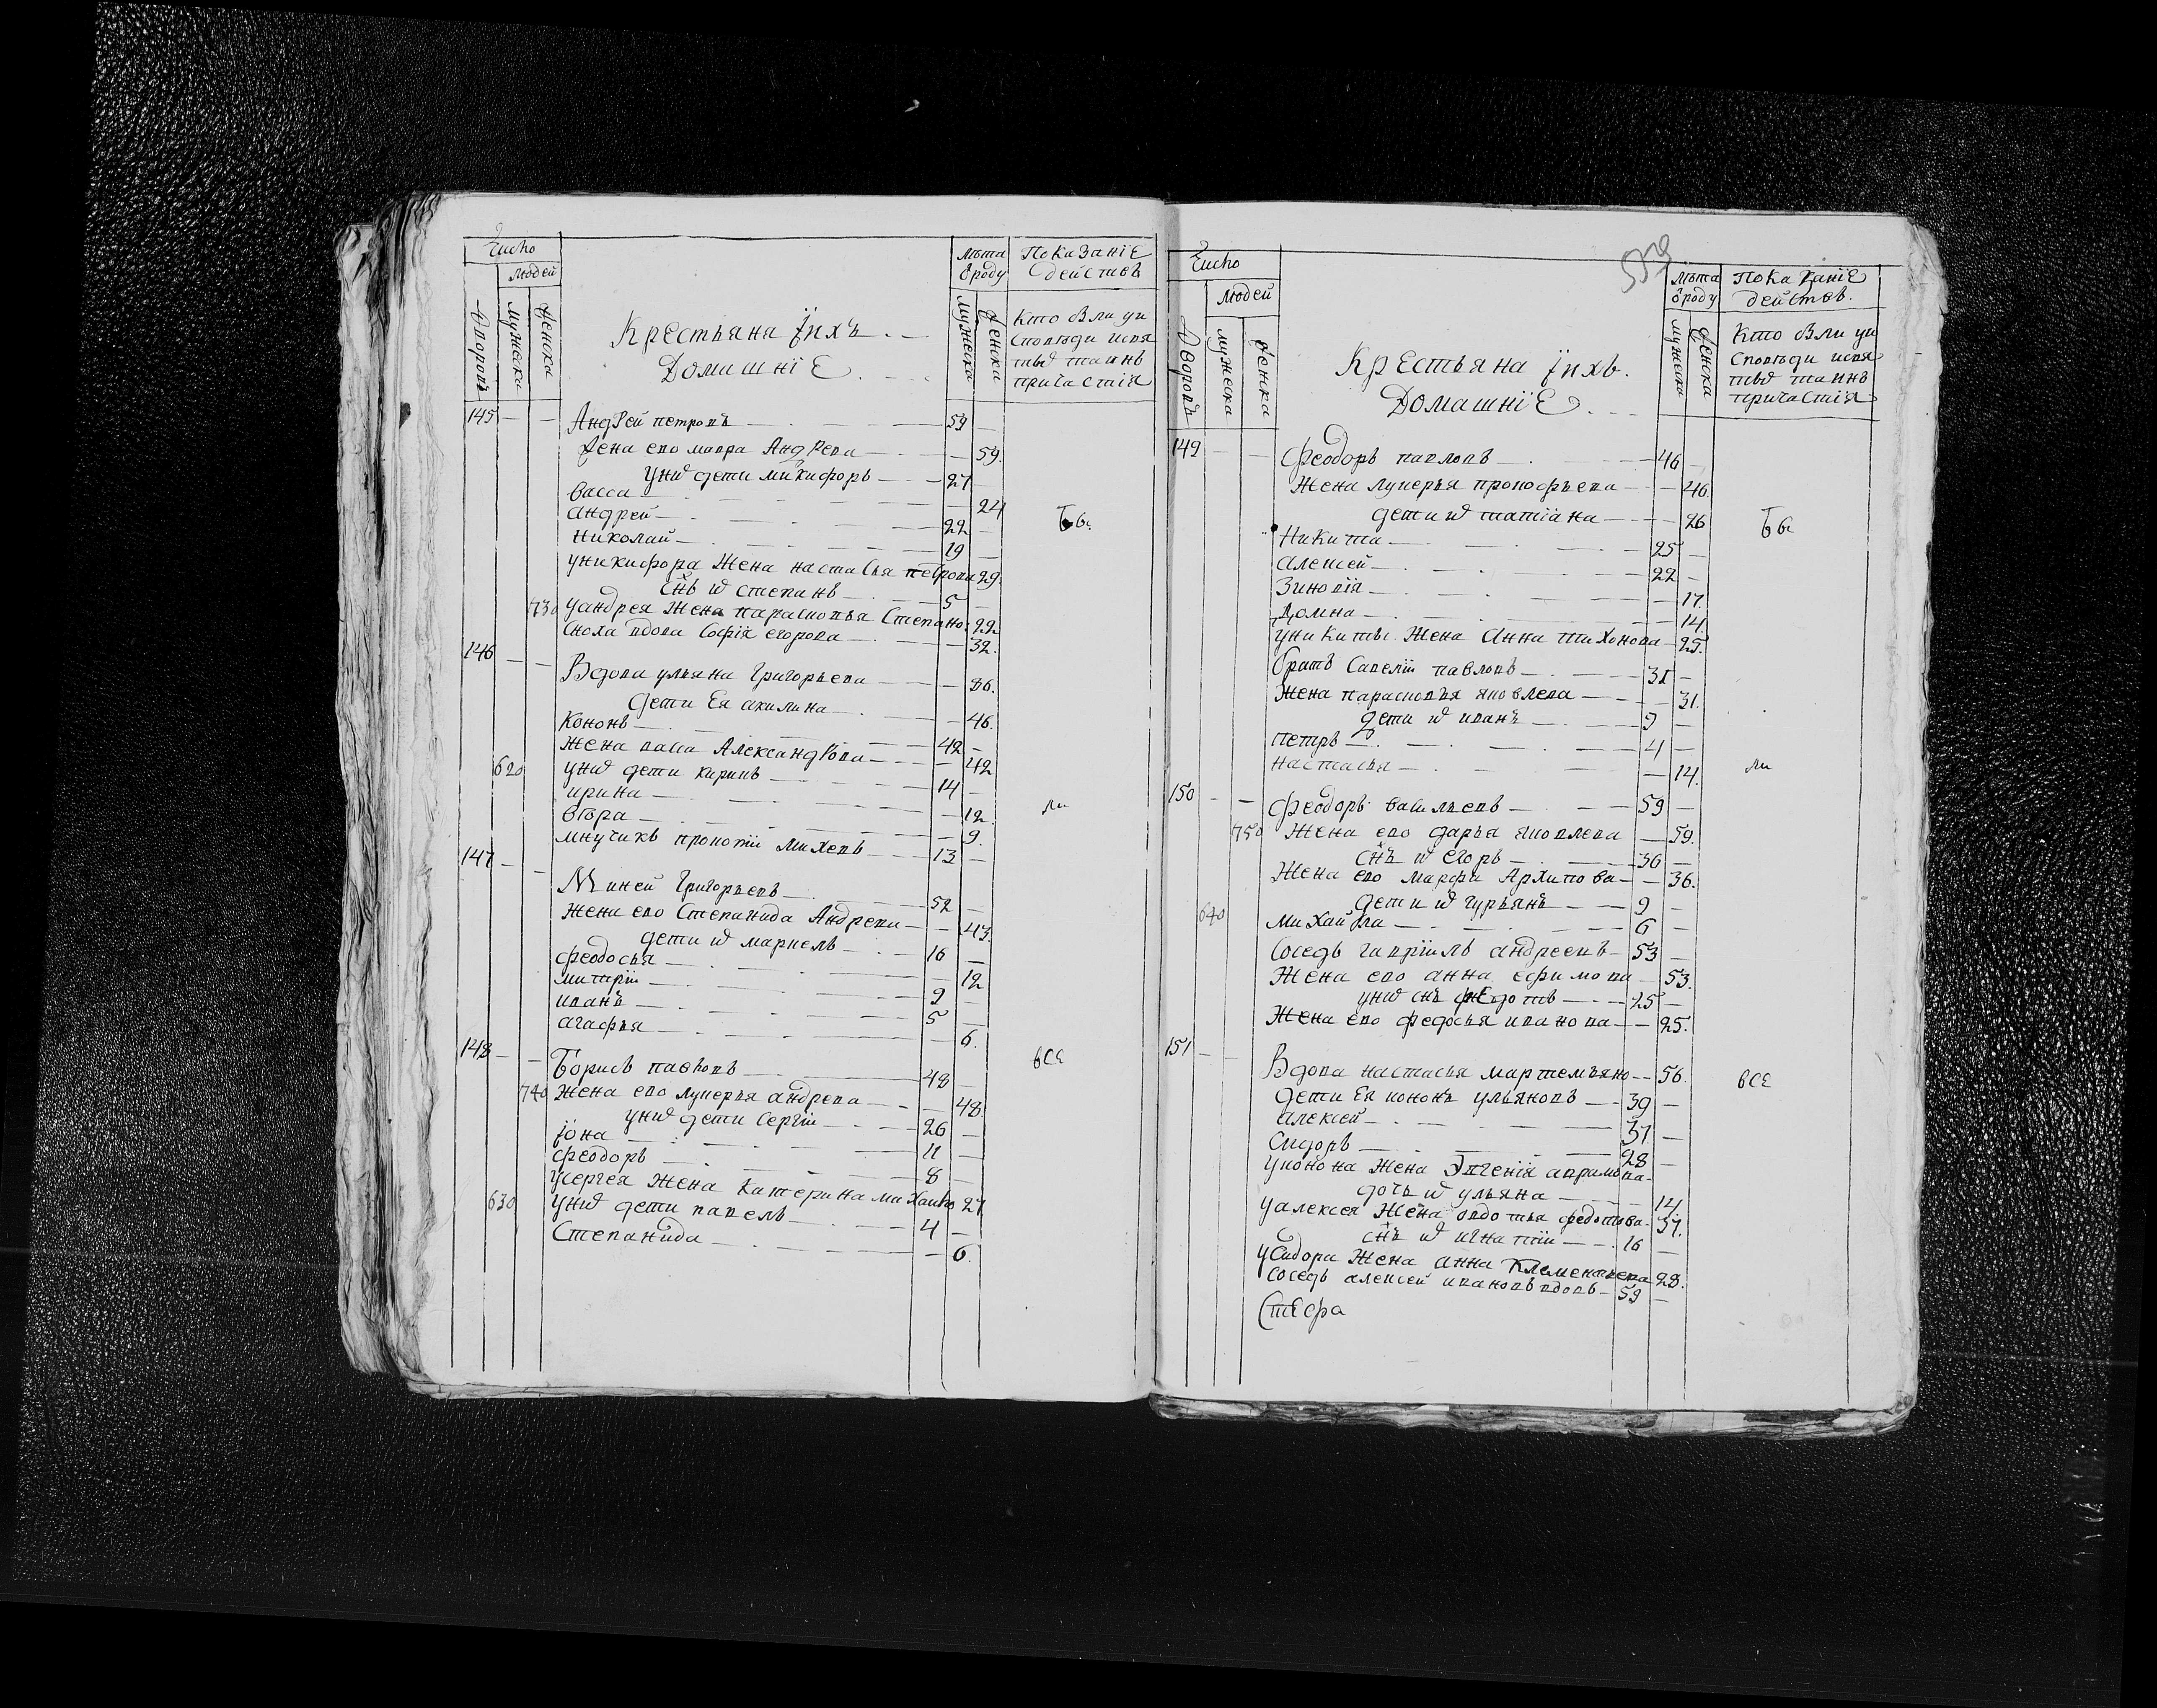 Число
людей
Дворовъ
мужеска
женска
Крестьяна ӏихъ
Домашнїе
Лѣта ѿроду
мужеска
женска
Показанїе действъ
Кто былъ уи
споведи исвя
тыѯ таинъ
причастїя
145 Андрей петровъ 59
Жена ево мавра Андреева 59
Униѯ дети микифоръ 27
васса 24
андрей 22
николай 19
уникифора Жена настасья петрова 29
снъ иѯ степанъ 5
730 уандрея Жена парасковья Степано: 22
сноха вдова Софїя егорова 32
146 Вдова ульяна Григорьева 86
Дети Ея акилина 46
Кононъ 42
Жена васса Александрова 42
620 униѯ дети карпъ 14
ирина 12
вѣра 9
внучикъ прокопїй Михевъ 13
147 Михей Григорьевъ 52
Жена ево Степанида Андреева 43
дети иѯ маркелъ 16
феодосья 12
митрїй 9
иванъ 5
агафья 6
148 Борисъ павловъ 48
740 Жена ево лукерья андреева 48
униѯ дети Сергїй 26
їона 11
феодоръ 8
усергея Жена Катерина михайло 27
630 униѯ дети павелъ 4
Степанида 6
бы
ли
все
Число
людей
Дворовъ
мужеска
женска
Крестьяна ӏихъ.
Домашнїе
Лѣта ѿроду
мужеска
женска
Показанїе действ.
Кто былъ уи
споведи исвя
тыѯ таинъ
причастїя
149 Феодоръ павловъ 46
Жена лукерья прокофьева 46
дети иѯ татїана 26
Никита 25
алексей 22
Зиновїя 17
Домна 14
уникиты Жена Анна тихонова 25
братъ Савелїй павловъ 31
Жена парасковья яковлева 31
дети иѯ иванъ 9
петръ 4
настасья 14
150 Феодоръ васильевъ 59
750 Жена ево дарья яковлева 59
снъ иѯ егоръ 36
Жена ево марфа Архипова 36
дети иѯ гурьянъ 9
640 михайла 6
соседъ гаврїилъ андреевъ 53
Жена ево анна ефимова 53
униѯ снъ федотъ 25
Жена ево федосья иванова 25
151 Вдова настасья мартемьяно 56
дети Ея кононъ ульяновъ 39
алексей 37
Сидоръ 28
уконона Жена Эвгенїя аврамова
дочь иѯ ульяна 14
уалексея Жена овдотья федотова 37
снъ иѯ игнатїй 16
усидора Жена анна Клементьева 28
соседъ алексей ивановъ вдовъ 59
бы
ли
все